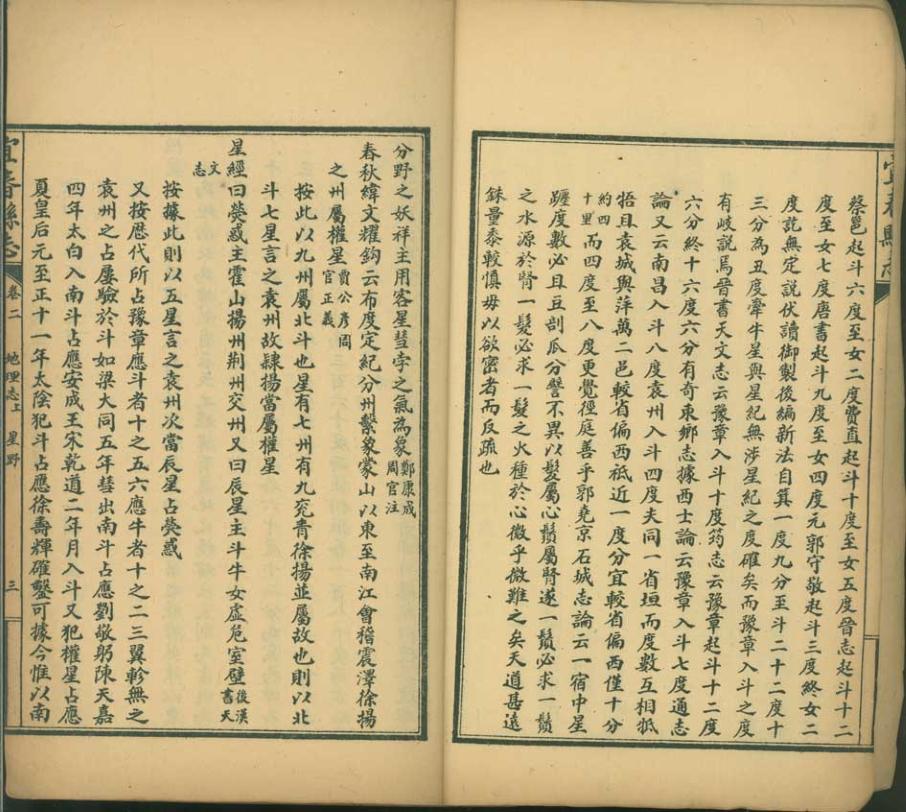 蔡邕起斗六度至女二度費直起斗十度至女五度晉志起斗十二
度至女七度唐書起斗九度至女四度元郭守敬起斗三度終女二
度訖無定説伏讀御製後編新法自箕一度九分至斗二十二度十
三分為丑度牽牛星與星紀無涉星紀之度確矣而豫章入斗之度
有岐説焉晉書天文志云豫章入斗十度筠志云豫章起斗十二度
六分終十六度六分有奇東鄉志據西士論云豫章入斗七度通志
論又云南昌入斗八度袁州入斗四度夫同一省垣而度數互相牴
牾且袁城與萍萬二邑較省偏西祗近一度分宜較省偏西僅十分
約四十里而四度至八度更覺徑庭善乎郭堯京石城志論云一宿中星
躔度數必且豆剖瓜分譬不異以髮屬心鬚屬腎遂一鬚必求一鬚
之水源於腎一髮必求一髮之火種於心微乎微難之矣天道甚遠
銖量黍較慎毋以欲密者而反疏也
分野之妖祥主用客星彗孛之氣為象鄭康成周官注
春秋緯文耀鈎云布度定紀分州繫象蒙山以東至南江會稽震澤徐揚
之州屬權星賈公彥周官正義
按此以九州屬北斗也星有七州有九兖青徐揚並屬故也則以北
斗七星言之袁州故隸揚當屬權星
星經曰熒惑主霍山揚州荆州交州又曰辰星主斗牛女虛危室壁後漢書天
文志
按據此則以五星言之袁州次當辰星占熒惑
又按歷代所占豫章應斗者十之五六應牛者十之二三翼軫無之
袁州之占屢驗於斗如梁大同五年彗出南斗占應劉敬躬陳天嘉
四年太白入南斗占應安成王宋乾道二年月入斗又犯權星占應
夏皇后元至正十一年太陰犯斗占應徐壽輝確鑿可據今惟以南
宜春縣志
卷二
地理志上 星野
三